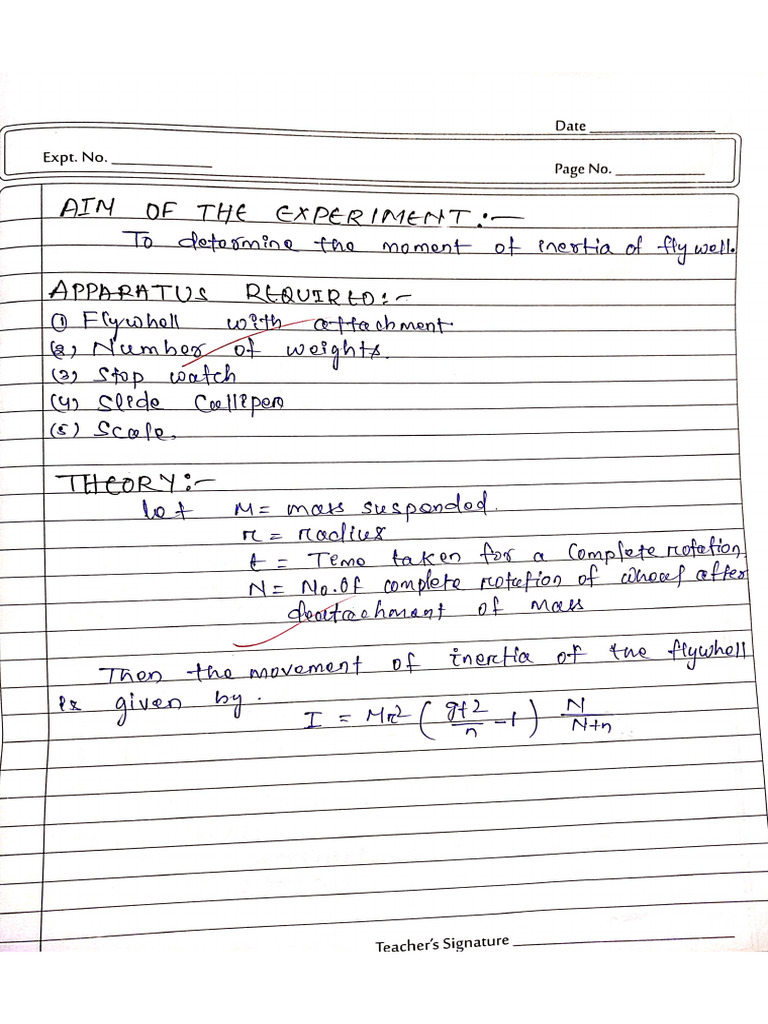 Date
Expt. No.
Page No.
AIM OF THE EXPERIMENT:-
To determine the moment of inertia of flywell.
APPARATUS REQUIRED:-
① Flywhell with attachment
(2) Number of weights.
(3) Stop watch
(4) Slide Callipers
(5) Scale.
THEORY:-
let M = mass suspended.
r = radius
t = Teme taken for a complete rotation
N = No. Of complete rotation of wheel after
deatachment of mass
Then the movement of inertia of the flywhell
is given by.
I = Mr² (gt2/n - 1) N/N+n
Teacher's Signature